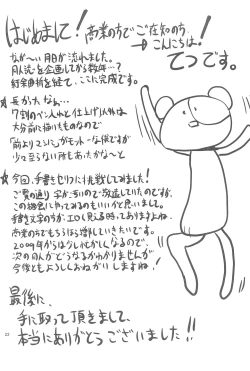 はじめまして!商業のもでご存知のち
→こんにちは!
てつです。
なが〜い月日が流れました。
月人読を企画してから数年…?
紆余曲折を経て、ここに完成です。
★長かったな…
7割のペン入れと仕上げ以外は
大分前に描いてたものなので
「前よりマシ」がモットーな僕ですが
少々至らない所もあったかな〜と
★今回、手書きモリに挑戦してみました!
ご覧の通り字がきたないので敬遠していたのですが、
この機会にやってみるのもいいかと思いました。
手書き文字の方がエロく見える時ってありますよね。
商業のちでもちろほら増やしていきたいです。
2009年からはなしにくくなるので、
次の同人がどうなるかわかりませんが
今後ともよろしくおねがいしますね!
最後に、
手に取って頂きまして、
本当にありがとうございました!!